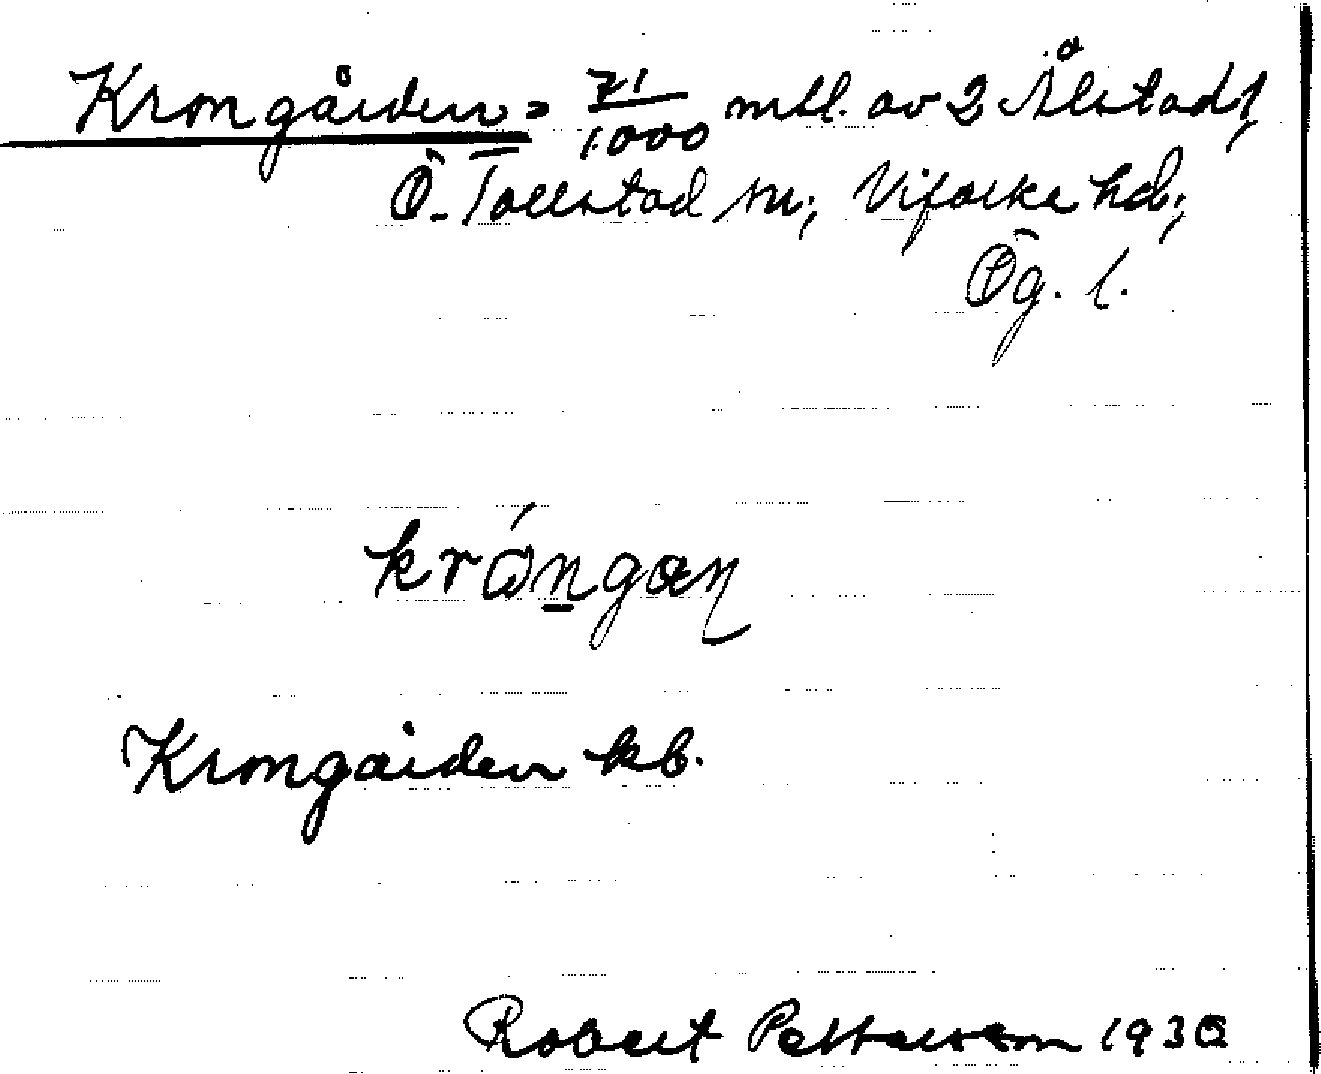 Krongården = 71/1000 mtl. av 2 Ålstad,
Ö. Tollstad sn; Vifolke hd;
Ög. l.
krón̲gaɳ
Krongården kb.
Robert Pettersson 1930